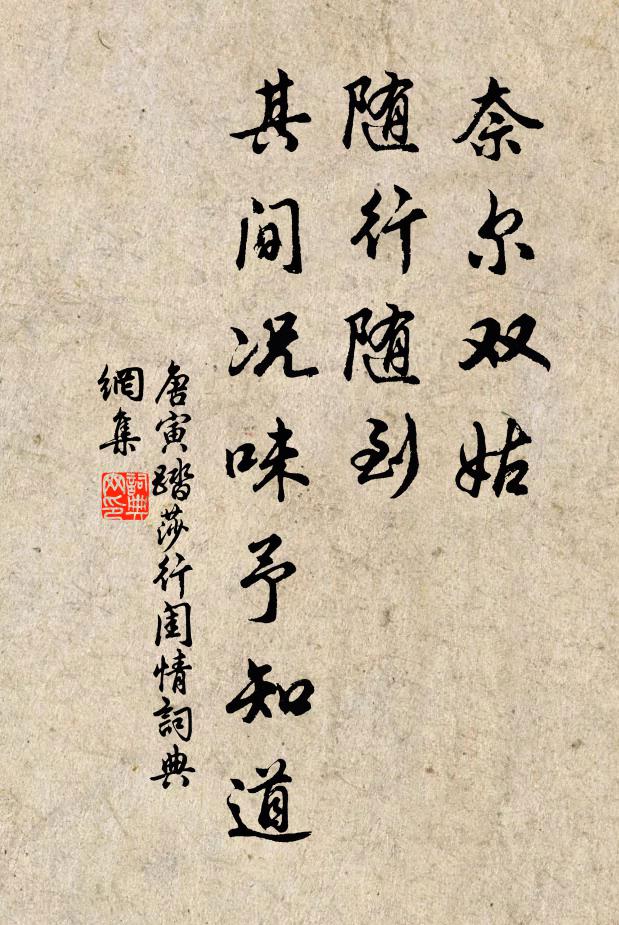 奈尔双姑
随行随到
其间况味予知道
唐寅踏莎行闺情詞典
網集
詞典
网印